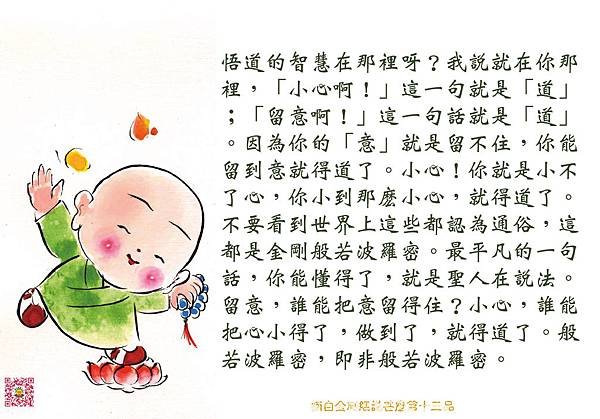 悟道的智慧在那裡呀？我說就在你那
裡，「小心啊！」這一句就是「道」
；「留意啊！」這一句話就是「道」
。因為你的「意」就是留不住，你能
留到意就得道了。小心！你就是小不
了心，你小到那麼小心，就得道了。
不要看到世界上這些都認為通俗，這
都是金剛般若波羅密。最平凡的一句
話，你能懂得了，就是聖人在說法。
留意，誰能把意留得住？小心，誰能
把心小得了，做到了，就得道了。般
若波羅密，即非般若波羅密。